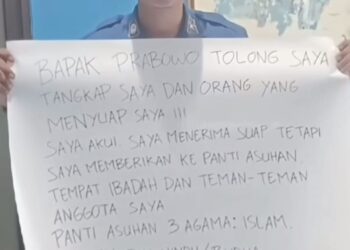 BAPAK PRABOWO TOLONG SAYA
TANGKAP SAYA DAN ORANG YANG
MENYUAP SAYA !!!
SAYA AKUI. SAYA MENERIMA SUAP TETAPI
SAYA MEMBERIKAN KE PANTI ASUHAN.
TEMPAT IBADAH DAN TEMAN-TEMAN
ANGGOTA SAYA
PANTI ASUHAN 3 AGAMA: ISLAM.